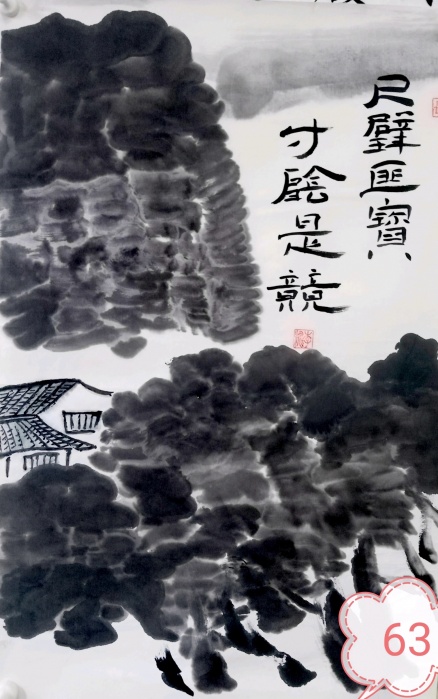 尺璧匪寶
寸陰是競
63